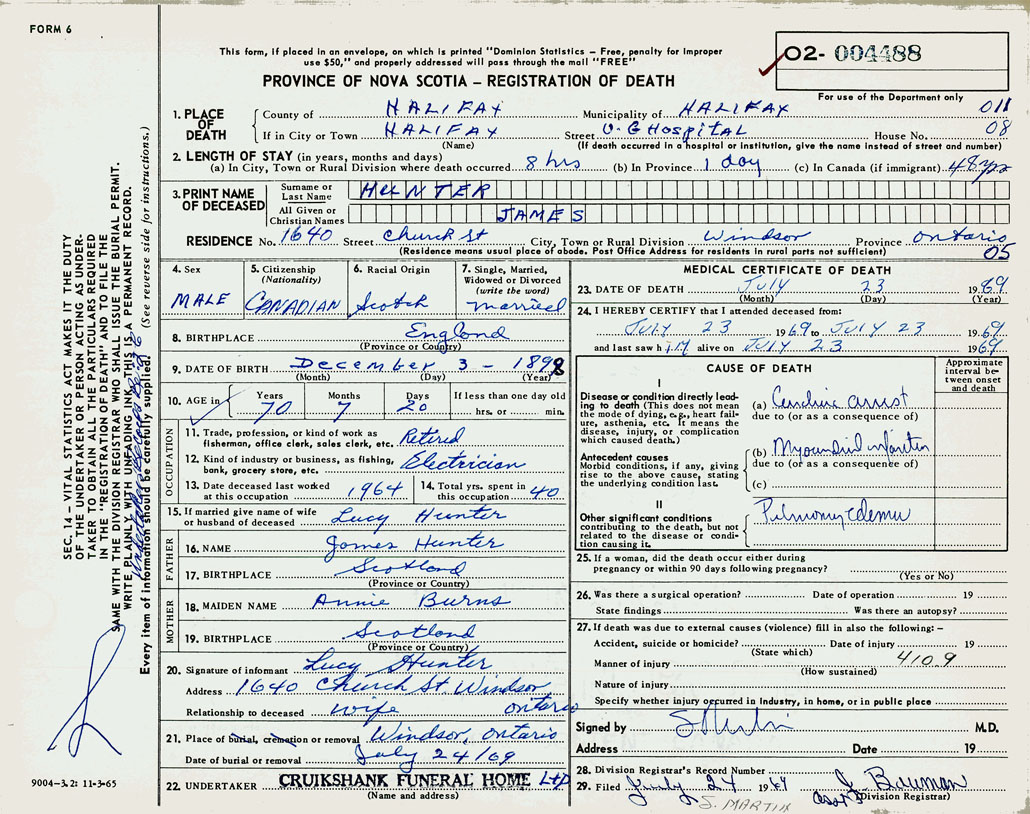 FORM 6
02- 004488
This form, if placed in an envelope, on which is printed "Dominion Statistics – Free, penalty for improper
use $50," and properly addressed will pass through the mail "FREE"
PROVINCE OF NOVA SCOTIA – REGISTRATION OF DEATH
For use of the Department only
1. PLACE OF DEATH
County of HALIFAX Municipality of HALIFAX 011
If in City or Town HALIFAX Street V.G Hospital House No. 08
(Name) (If death occurred in a hospital or institution, give the name instead of street and number)
2. LENGTH OF STAY (in years, months and days)
(a) In City, Town or Rural Division where death occurred 8 hrs (b) In Province 1 day (c) In Canada (if immigrant) 48 yrs
3. PRINT NAME OF DECEASED
Surname or Last Name HUNTER
All Given or Christian Names JAMES
RESIDENCE No. 1640 Street Church St City, Town or Rural Division Windsor Province Ontario
(Residence means usual place of abode. Post Office Address for residents in rural parts not sufficient) 05
4. Sex MALE
5. Citizenship (Nationality) CANADIAN
6. Racial Origin Scotch
7. Single, Married, Widowed or Divorced (write the word) Married
8. BIRTHPLACE England
(Province or Country)
9. DATE OF BIRTH December 3 - 1898
(Month) (Day) (Year)
10. AGE in Years 70 Months 7 Days 20 If less than one day old hrs. or min.
OCCUPATION
11. Trade, profession, or kind of work as
fisherman, office clerk, sales clerk, etc. Retired
12. Kind of industry or business, as fishing,
bank, grocery store, etc. Electrician
13. Date deceased last worked
at this occupation 1964
14. Total yrs. spent in
this occupation 40
15. If married give name of wife
or husband of deceased Lucy Hunter
FATHER
16. NAME James Hunter
17. BIRTHPLACE Scotland
(Province or Country)
MOTHER
18. MAIDEN NAME Annie Burns
19. BIRTHPLACE Scotland
(Province or Country)
20. Signature of informant Lucy Hunter
Address 1640 Church St. Windsor, Ontario
Relationship to deceased wife
21. Place of burial, cremation or removal Windsor, Ontario
Date of burial or removal July 24/69
22. UNDERTAKER CRUIKSHANK FUNERAL HOME Ltd
(Name and address)
MEDICAL CERTIFICATE OF DEATH
23. DATE OF DEATH July 23 1969
(Month) (Day) (Year)
24. I HEREBY CERTIFY that I attended deceased from:
July 23 1969 to July 23 1969
and last saw him alive on July 23 1969
CAUSE OF DEATH
Approximate interval between onset and death
I
Disease or condition directly lead-
ing to death (This does not mean
the mode of dying, e.g., heart fail-
ure, asthenia, etc. It means the
disease, injury, or complication
which caused death.)
(a) Cardiac arrest
due to (or as a consequence of)
Antecedent causes
Morbid conditions, if any, giving
rise to the above cause, stating
the underlying condition last.
(b) Myocardial infarction
due to (or as a consequence of)
(c)
II
Other significant conditions
contributing to the death, but not
related to the disease or condi-
tion causing it.
Pulmonary edema
25. If a woman, did the death occur either during
pregnancy or within 90 days following pregnancy?
(Yes or No)
26. Was there a surgical operation? Date of operation 19
State findings Was there an autopsy?
27. If death was due to external causes (violence) fill in also the following: –
Accident, suicide or homicide? Date of injury 19
(State which) 4109
Manner of injury
(How sustained)
Nature of injury
Specify whether injury occurred in Industry, in home, or in public place
Signed by M.D.
Address Date 19
28. Division Registrar's Record Number
29. Filed July 24 1969 J. Bauman
S. MARTIN ass't (Division Registrar)
SEC. 14 – VITAL STATISTICS ACT MAKES IT THE DUTY
OF THE UNDERTAKER OR PERSON ACTING AS UNDER-
TAKER TO OBTAIN ALL THE PARTICULARS REQUIRED
IN THE "REGISTRATION OF DEATH" AND TO FILE THE
SAME WITH THE DIVISION REGISTRAR WHO SHALL ISSUE THE BURIAL PERMIT.
WRITE PLAINLY WITH UNFADING INK. THIS IS A PERMANENT RECORD.
Every item of information should be carefully supplied. (See reverse side for instructions.)
9004–3.2: 11-3-65